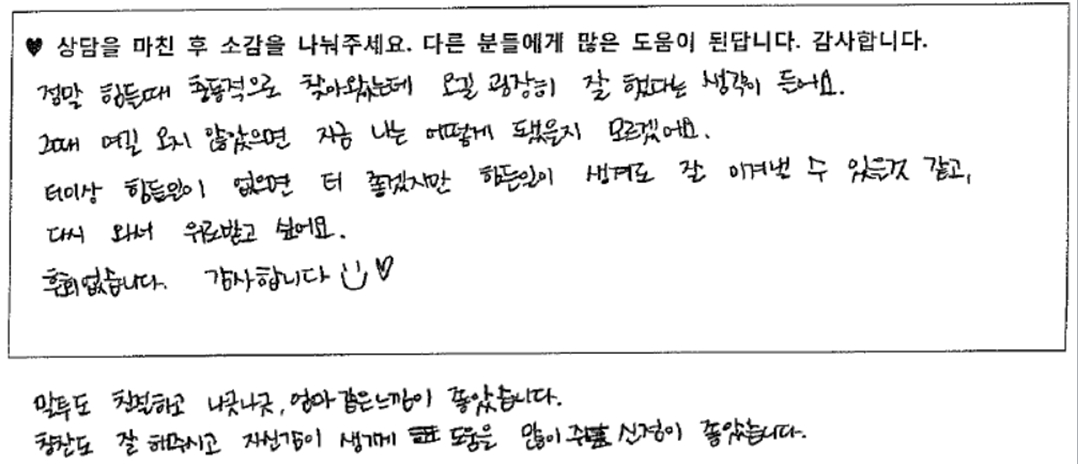 ♥ 상담을 마친 후 소감을 나눠주세요. 다른 분들에게 많은 도움이 된답니다. 감사합니다.
정말 힘들때 충동적으로 찾아왔는데 오길 굉장히 잘 했다는 생각이 들어요.
그때 여길 오지 않았으면 지금 나는 어떻게 됐을지 모르겠어요.
더이상 힘든일이 없으면 더 좋겠지만 힘든일이 생겨도 잘 이겨낼 수 있을것 같고,
다시 와서 위로받고 싶어요.
후회없습니다. 감사합니다 ♥
말투도 친절하고 나긋나긋, 엄마같은느낌이 좋았습니다.
칭찬도 잘 해주시고 자신감이 생기게 도움을 많이 주 신점이 좋았습니다.